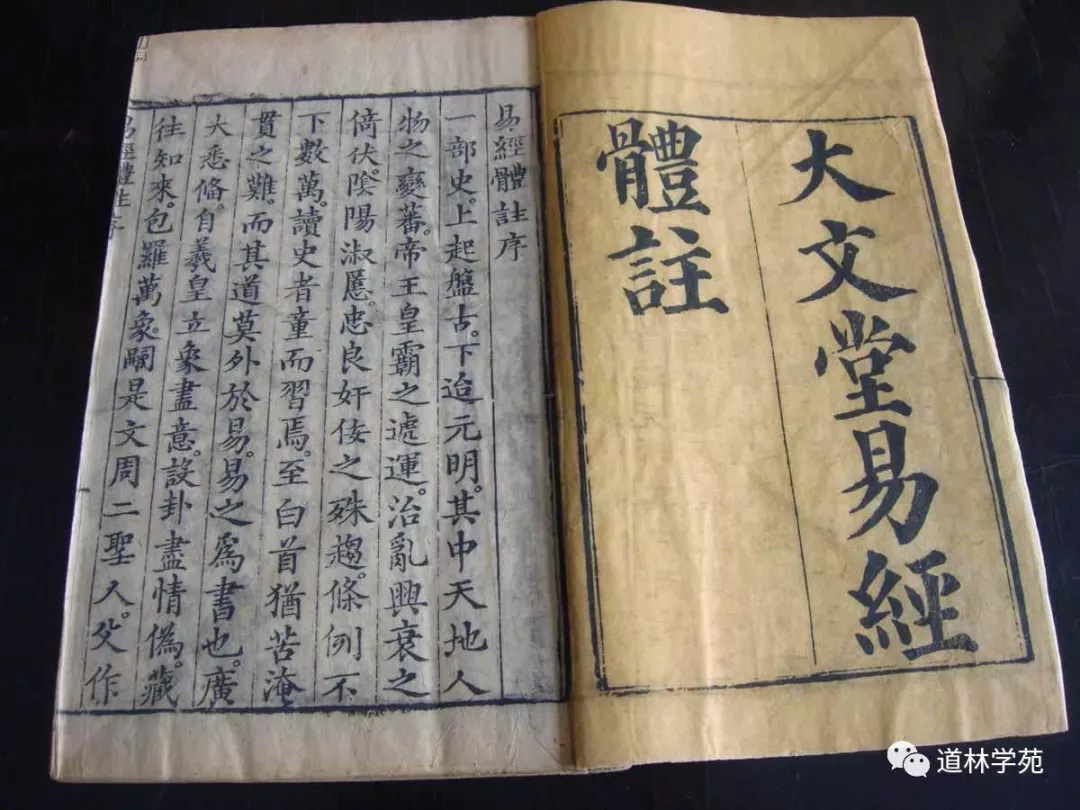 大文堂易經
體註
易經體註序
一部史。上起盤古。下迨元明。其中天地人
物之變蕃。帝王皇霸之遞運。治亂興衰之
倚伏。陰陽淑慝。忠良奸佞之殊趨。條例不
下數萬。讀史者童而習焉。至白首猶苦淹
貫之難。而其道莫外於易。易之為書也。廣
大悉備。自羲皇立象盡意。設卦盡情偽。藏
往知來。包羅萬象。嗣是文周二聖人。父作
易經體註序
道林学苑